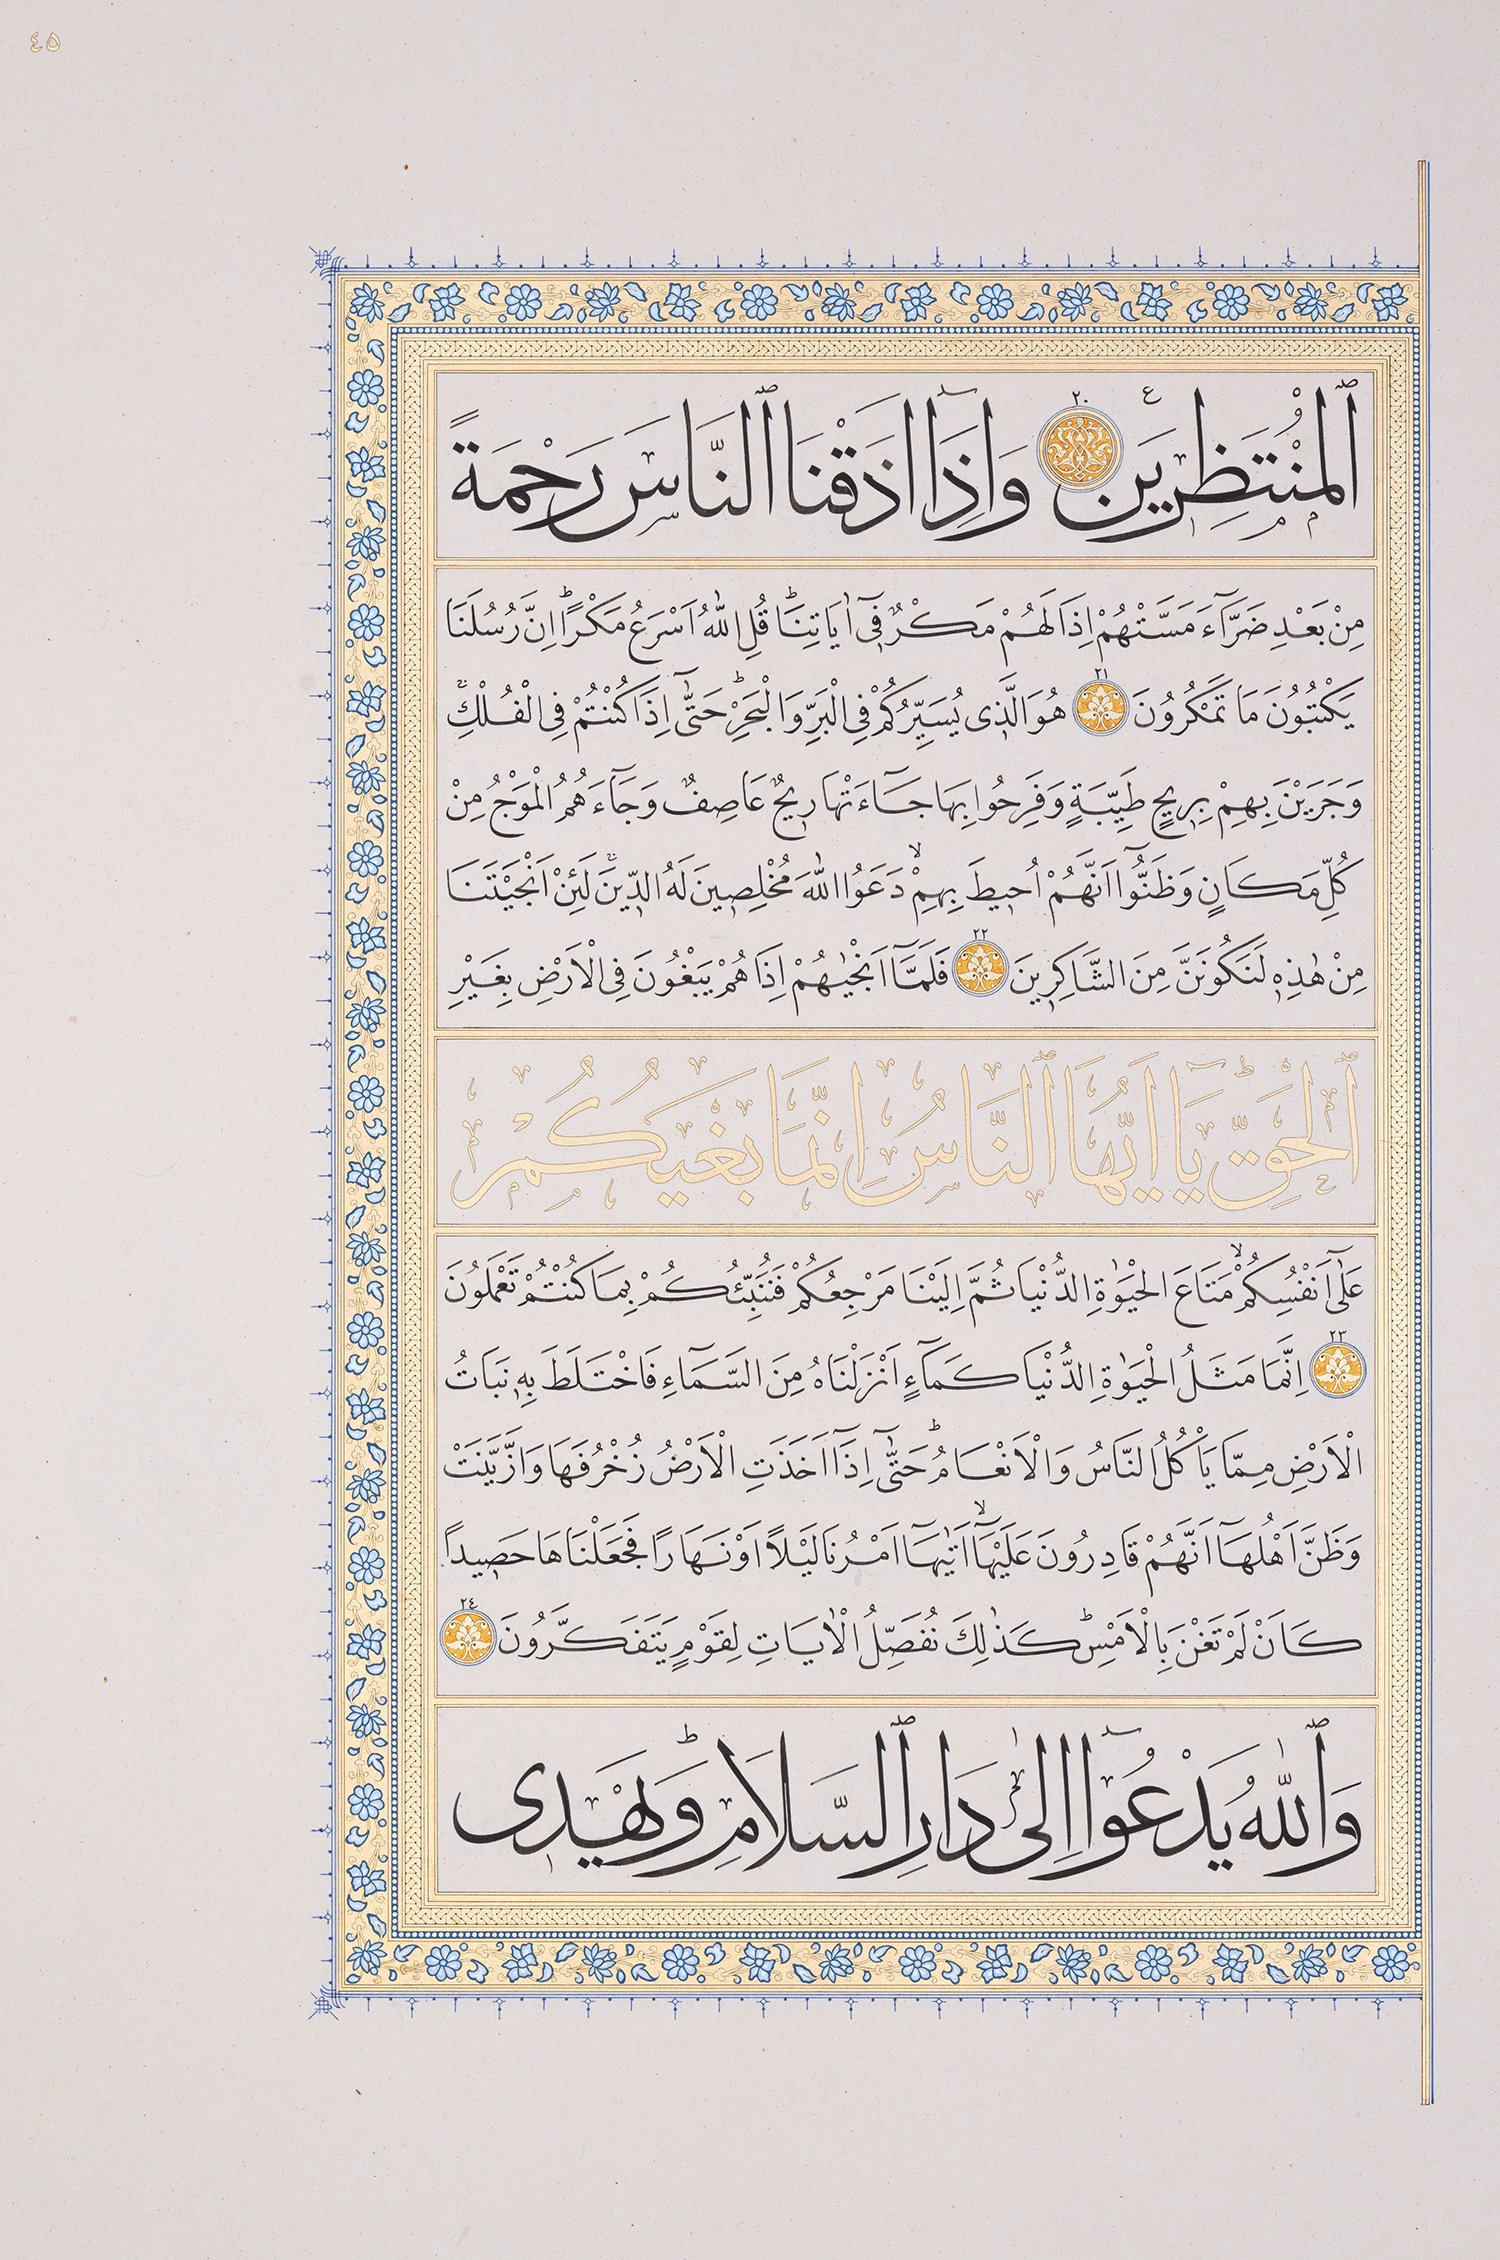 ٤٥
ٱلْمُنْتَظِرِينَ ٢٠ وَاِذَٓا اَذَقْنَا ٱلنَّاسَ رَحْمَةً
مِنْ بَعْدِ ضَرَّٓاءَ مَسَّتْهُمْ اِذَا لَهُمْ مَكْرٌ فِٓى اٰيَاتِنَاۜ قُلِ اللّٰهُ اَسْرَعُ مَكْرًاۜ اِنَّ رُسُلَنَا
يَكْتُبُونَ مَا تَمْكُرُونَ ٢١ هُوَ الَّذٖى يُسَيِّرُكُمْ فِى الْبَرِّ وَالْبَحْرِۜ حَتّٰٓى اِذَا كُنْتُمْ فِى الْفُلْكِۚ
وَجَرَيْنَ بِهِمْ بِرٖيحٍ طَيِّبَةٍ وَفَرِحُوا بِهَا جَٓاءَتْهَا رٖيحٌ عَاصِفٌ وَجَٓاءَهُمُ الْمَوْجُ مِنْ
كُلِّ مَكَانٍ وَظَنُّٓوا اَنَّهُمْ اُحٖيطَ بِهِمْۙ دَعَوُا اللّٰهَ مُخْلِصٖينَ لَهُ الدّٖينَۚ لَئِنْ اَنْجَيْتَنَا
مِنْ هٰذِهٖ لَنَكُونَنَّ مِنَ الشَّاكِرٖينَ ٢٢ فَلَمَّٓا اَنْجٰيهُمْ اِذَا هُمْ يَبْغُونَ فِى الْاَرْضِ بِغَيْرِ
ٱلْحَقِّۜ يَٓا اَيُّهَا ٱلنَّاسُ اِنَّمَا بَغْيُكُمْ
عَلٰٓى اَنْفُسِكُمْۙ مَتَاعَ الْحَيٰوةِ الدُّنْيَا ثُمَّ اِلَيْنَا مَرْجِعُكُمْ فَنُنَبِّئُكُمْ بِمَا كُنْتُمْ تَعْمَلُونَ
٢٣ اِنَّمَا مَثَلُ الْحَيٰوةِ الدُّنْيَا كَمَٓاءٍ اَنْزَلْنَاهُ مِنَ السَّمَٓاءِ فَاخْتَلَطَ بِهٖ نَبَاتُ
الْاَرْضِ مِمَّا يَاْكُلُ النَّاسُ وَالْاَنْعَامُۜ حَتّٰٓى اِذَٓا اَخَذَتِ الْاَرْضُ زُخْرُفَهَا وَازَّيَّنَتْ
وَظَنَّ اَهْلُهَٓا اَنَّهُمْ قَادِرُونَ عَلَيْهَٓاۙ اَتٰيهَٓا اَمْرُنَا لَيْلًا اَوْ نَهَارًا فَجَعَلْنَاهَا حَصٖيداً
كَاَنْ لَمْ تَغْنَ بِالْاَمْسِۜ كَذٰلِكَ نُفَصِّلُ الْاٰيَاتِ لِقَوْمٍ يَتَفَكَّرُونَ ٢٤
وَٱللّٰهُ يَدْعُٓوا اِلٰى دَارِ ٱلسَّلَامِۜ وَيَهْدٖى